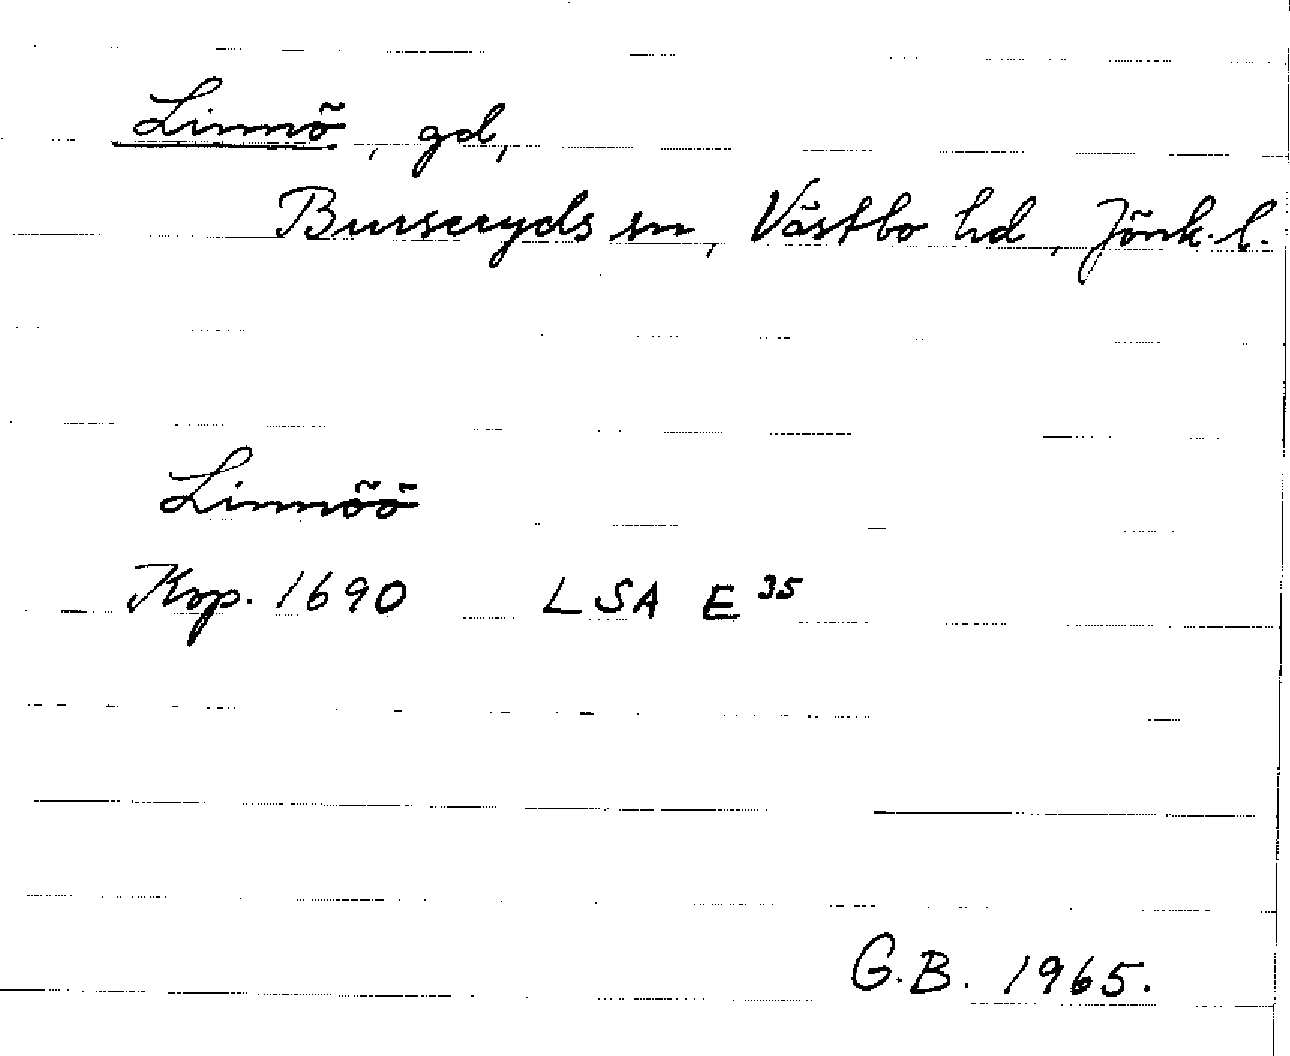 Linnö, gd,
Burseryds sn, Västbo hd, Jönk. l.
Linnöö
Kop. 1690 LSA E 35
G.B. 1965.